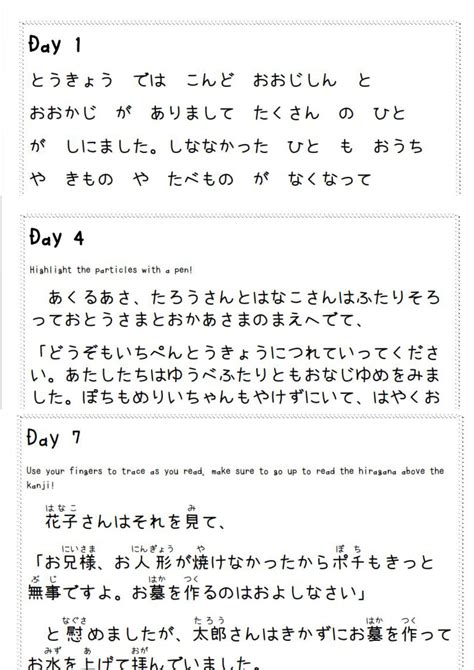 Day 1
とうきょう では こんど おおじしん と
おおかじ が ありまして たくさん の ひと
が しにました。しななかった ひと も おうち
や きもの や たべもの が なくなって
Day 4
Highlight the particles with a pen!
あくるあさ、たろうさんとはなこさんはふたりそろ
っておとうさまとおかあさまのまえへでて、
「どうぞもいちぺんとうきょうにつれていってくださ
い。あたしたちはゆうべふたりともおなじゆめをみま
した。ぽちもめりいちゃんもやけずにいて、はやくお
Day 7
Use your fingers to trace as you read, make sure to go up to read the hiragana above the
kanji!
はなこ み
花子さんはそれを見て、
にいさま にんぎょう や ぽち
「お兄様、お人形が焼けなかったからポチもきっと
ぶじ はか つく
無事ですよ。お墓を作るのはおよしなさい」
なぐさ たろう はか つく
と慰めましたが、太郎さんはきかずにお墓を作って
みず あ おが
お水を上げて拝んでいました。